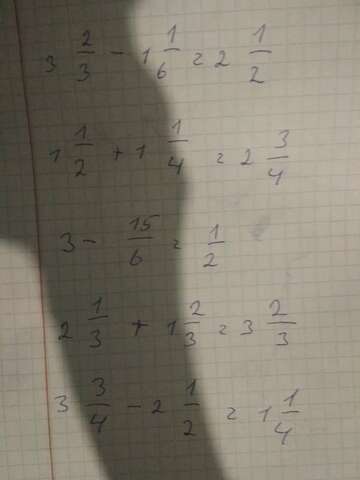 3 2/3 - 1 1/6 = 2 1/2
1 1/2 + 1 1/4 = 2 3/4
3 - 15/6 = 1/2
2 1/3 + 1 2/3 = 3 2/3
3 3/4 - 2 1/2 = 1 1/4